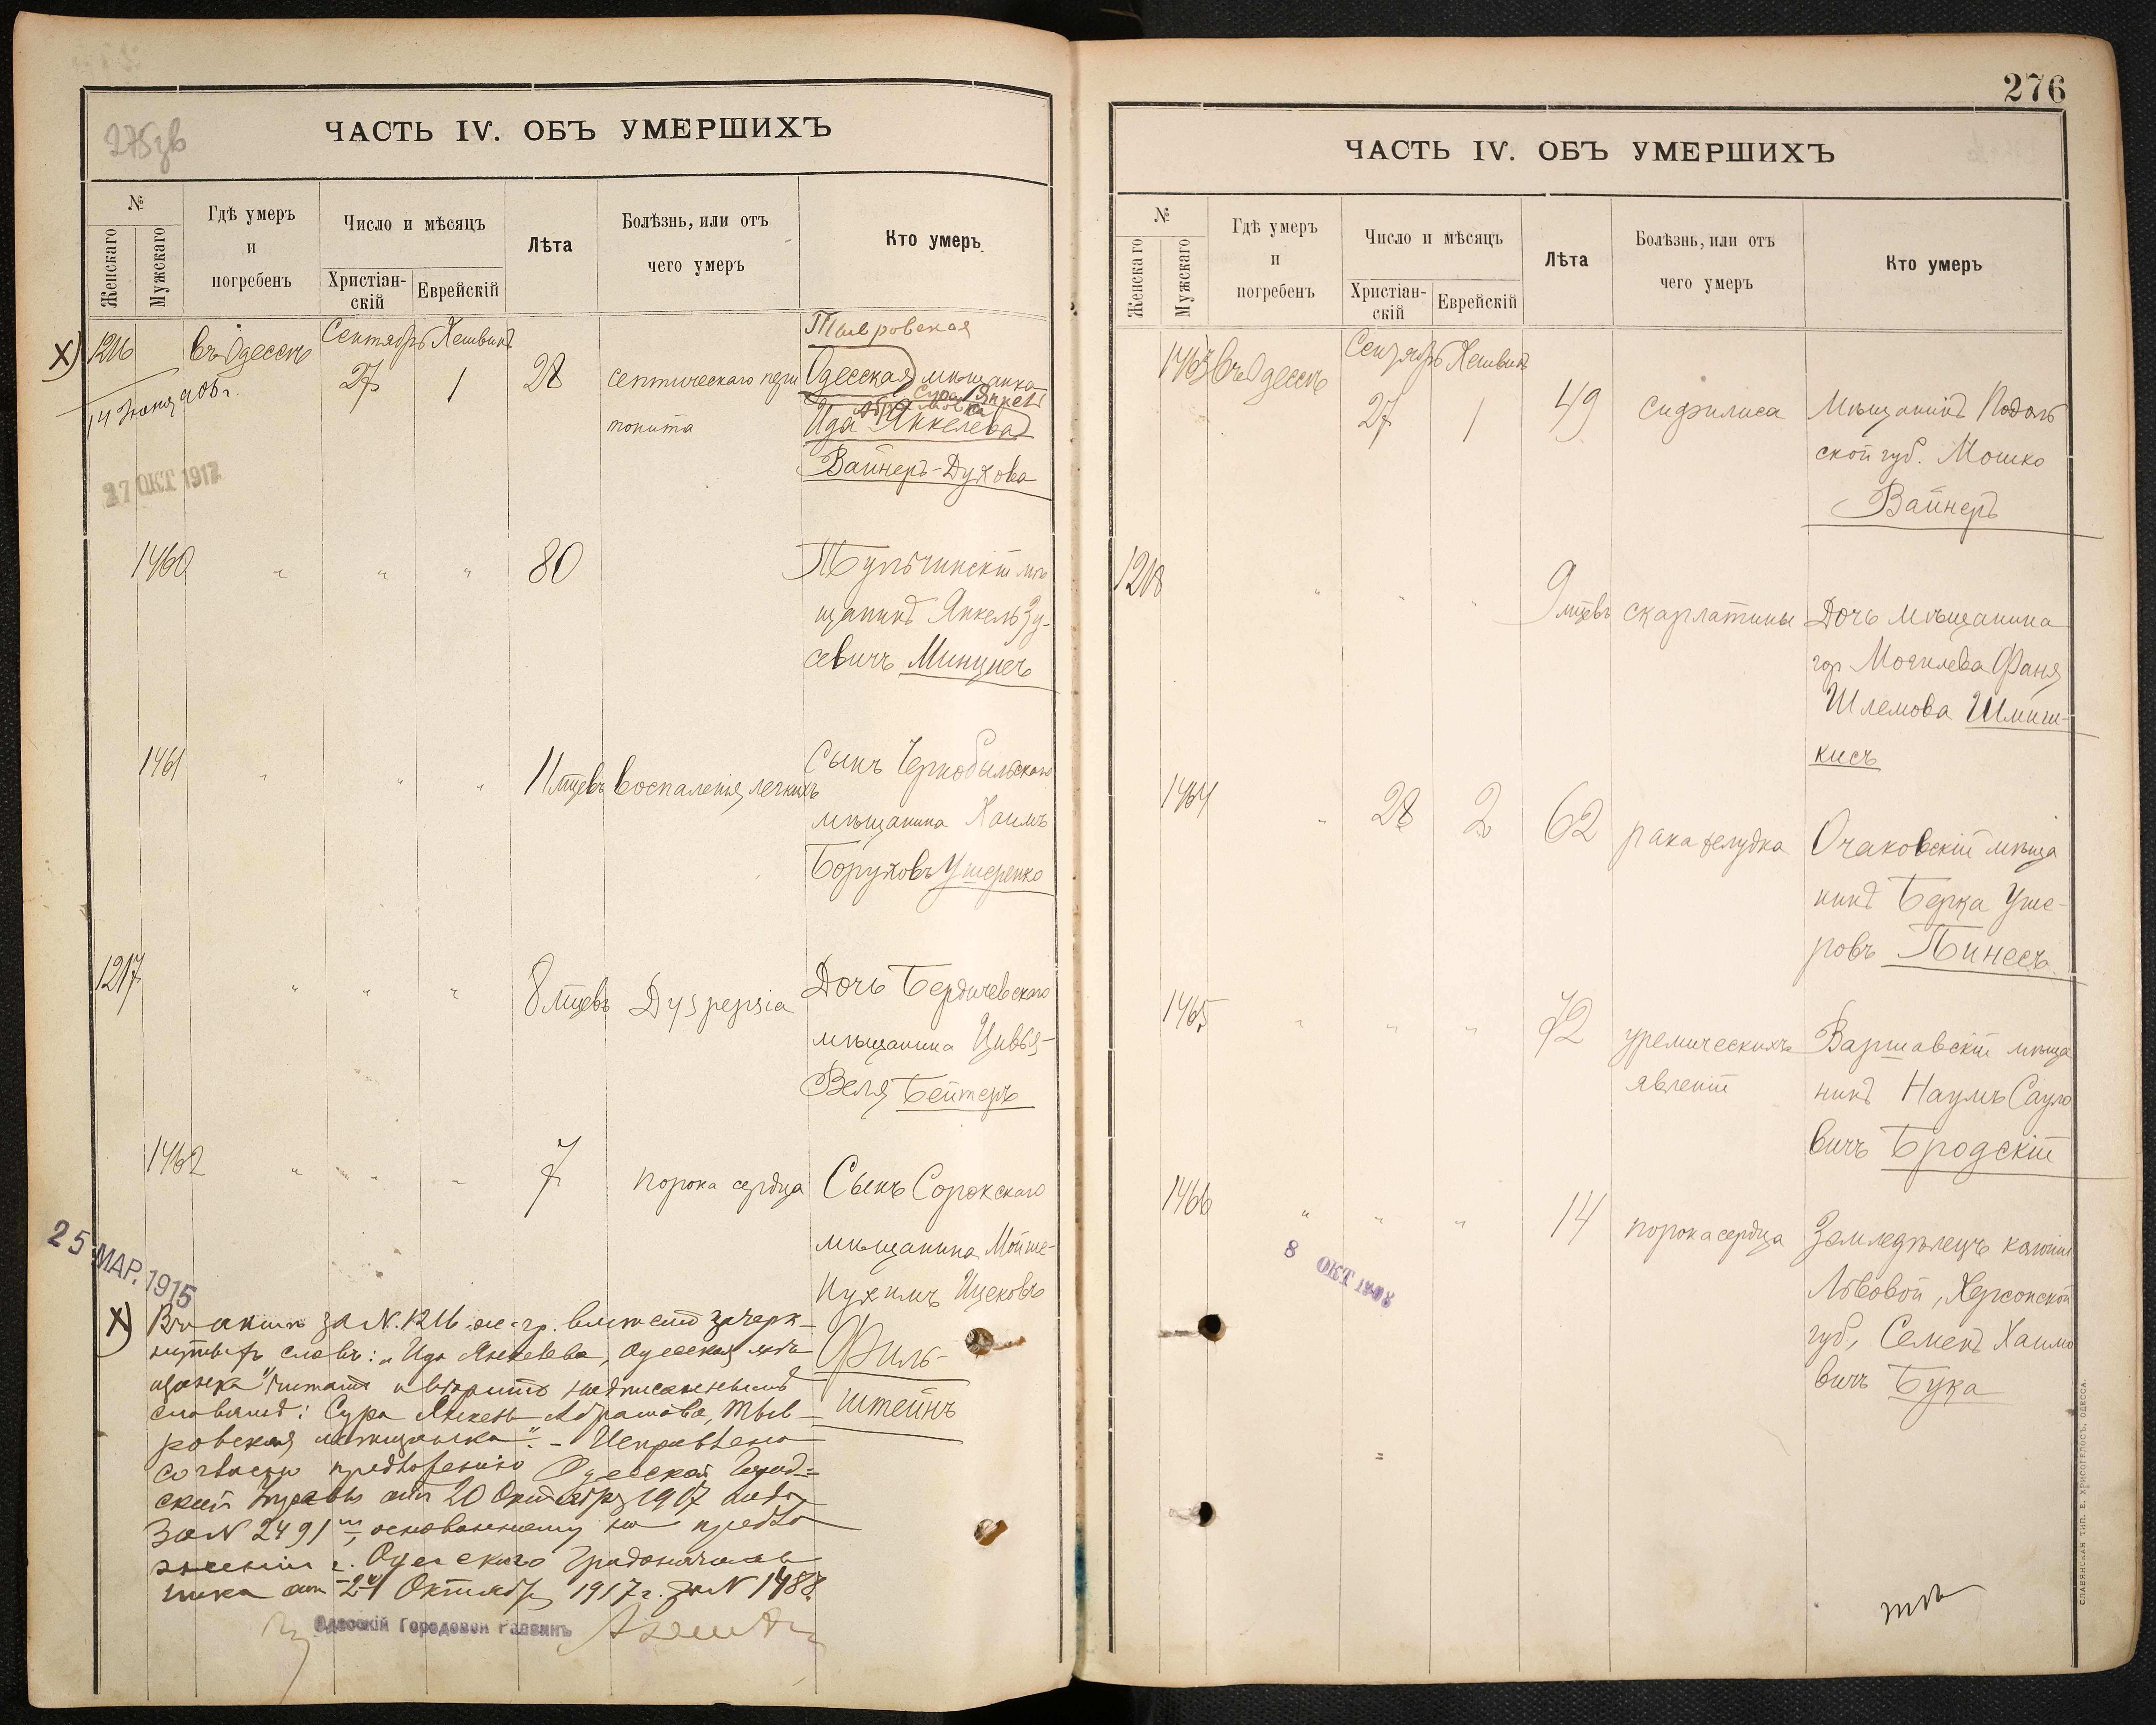 275 зв
ЧАСТЬ IV. ОБЪ УМЕРШИХЪ
№
Женскаго
Мужскаго
Гдѣ умеръ
и
погребенъ
Число и мѣсяцъ
Христіан-
скій
Еврейскій
Лѣта
Болѣзнь, или отъ
чего умеръ
Кто умеръ
Тывровская
X) 1216 въ Одессѣ Сентябрь Хешвинъ
27 1 28 септическаго пери Одесская мѣщанка
Сура Янкель
Абрамовна
тонита Ида Янкелева
Вайнеръ-Духова
27 ОКТ 1917
1460 " " " 80 Тульчинскій мѣ
щанинъ Янкель Зу-
севичъ
1461 " " " 11 мцевъ воспаленія легкихъ Сынъ Чернобыльскаго
мѣщанина Хаимъ
Боруховъ Ушеренко
1217 " " " 8 мцевъ Dyspepsia Дочь Бердичевскаго
мѣщанина Цивья-
Веля Бейтеръ
1462 " " " 7 порока сердца Сынъ Сорокскаго
мѣщанина Мойше-
Нухимъ Ицековъ
Филь-
штейнъ
25 МАР. 1915
X) Въ актѣ за N. 1216 ж. гр. вмѣсто зачерк-
нутыхъ словъ: "Ида Янкелева, Одесская мѣ
щанка" читать надписаннымъ
словамъ: Сура Янкель Абрамова, Тыв-
ровская мѣщанка". - Исправлено
согласно предложенію Одесской Город-
ской Управы отъ 20 Октября 1917 года
за N 2491, основанному на предло
женіи г. Одесскаго Градоначаль
ника отъ Октября 1917 г. за N 1488.
Одесскій Городовой Раввинъ
276
ЧАСТЬ IV. ОБЪ УМЕРШИХЪ
№
Женскаго
Мужскаго
Гдѣ умеръ
и
погребенъ
Число и мѣсяцъ
Христіан-
скій
Еврейскій
Лѣта
Болѣзнь, или отъ
чего умеръ
Кто умеръ
1463 въ Одессѣ Сентябрь Хешвинъ
27 1 49 сифилиса Мѣщанинъ Подоль
ской губ. Мошко
Вайнеръ
1218 " " " 9 мцевъ скарлатины Дочь мѣщанина
гор Могилева Фаня
Шлемова Шмиш-
кисъ
1464 " 28 2 62 рака желудка Очаковскій мѣща
нинъ Берка Уше-
ровъ Пинесъ
1465 " " " 72 уремическихъ Варшавскій мѣща
явленій нинъ Наумъ Сауло
вичъ Бродскій
1466 " " " 14 порока сердца Земледѣлецъ колоніи
Львовой, Херсонской
губ, Семенъ Хаимо
вичъ Бука
8 ОКТ 1908
СЛАВЯНСКАЯ ТИП. Е. ХРИСОГЕЛОСЪ, ОДЕССА.